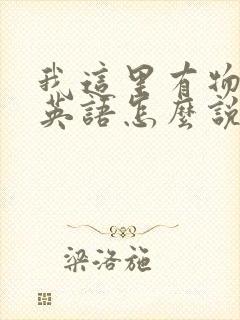 我這里有物
英語怎麼說
梁洛施